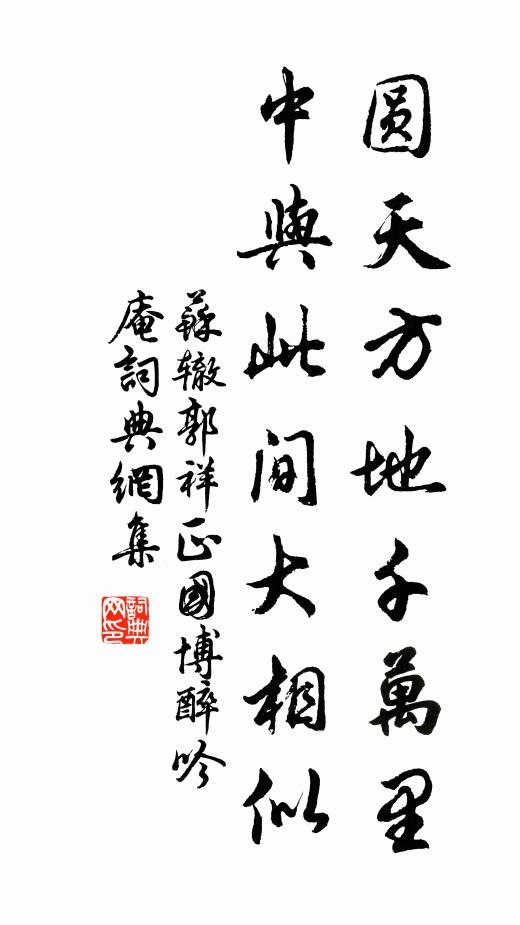 圆天方地千萬里
中與此间大相似
蘇辙郭祥正國博醉吟
庵詞典網集
詞典
网印